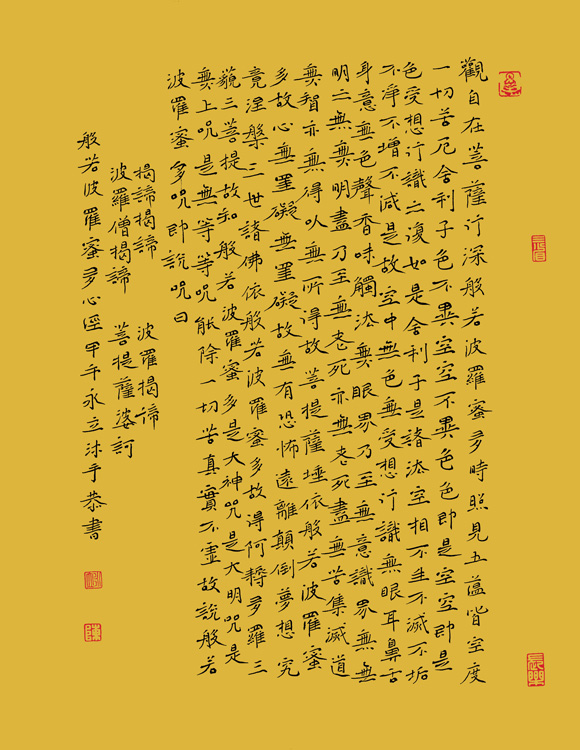 觀自在菩薩行深般若波羅蜜多時照見五蘊皆空度
一切苦厄舍利子色不異空空不異色色即是空空即是
色受想行識亦復如是舍利子是諸法空相不生不滅不垢
不淨不增不減是故空中無色無受想行識無眼耳鼻舌
身意無色聲香味觸法無眼界乃至無意識界無無
明亦無無明盡乃至無老死亦無老死盡無苦集滅道
無智亦無得以無所得故菩提薩埵依般若波羅蜜
多故心無罣礙無罣礙故無有恐怖遠離顛倒夢想究
竟涅槃三世諸佛依般若波羅蜜多故得阿耨多羅三
藐三菩提故知般若波羅蜜多是大神咒是大明咒是
無上咒是無等等咒能除一切苦真實不虛故說般若
波羅蜜多咒即說咒曰
揭諦揭諦 波羅揭諦
波羅僧揭諦 菩提薩婆訶
般若波羅蜜多心經甲午永立沐手恭書
長樂